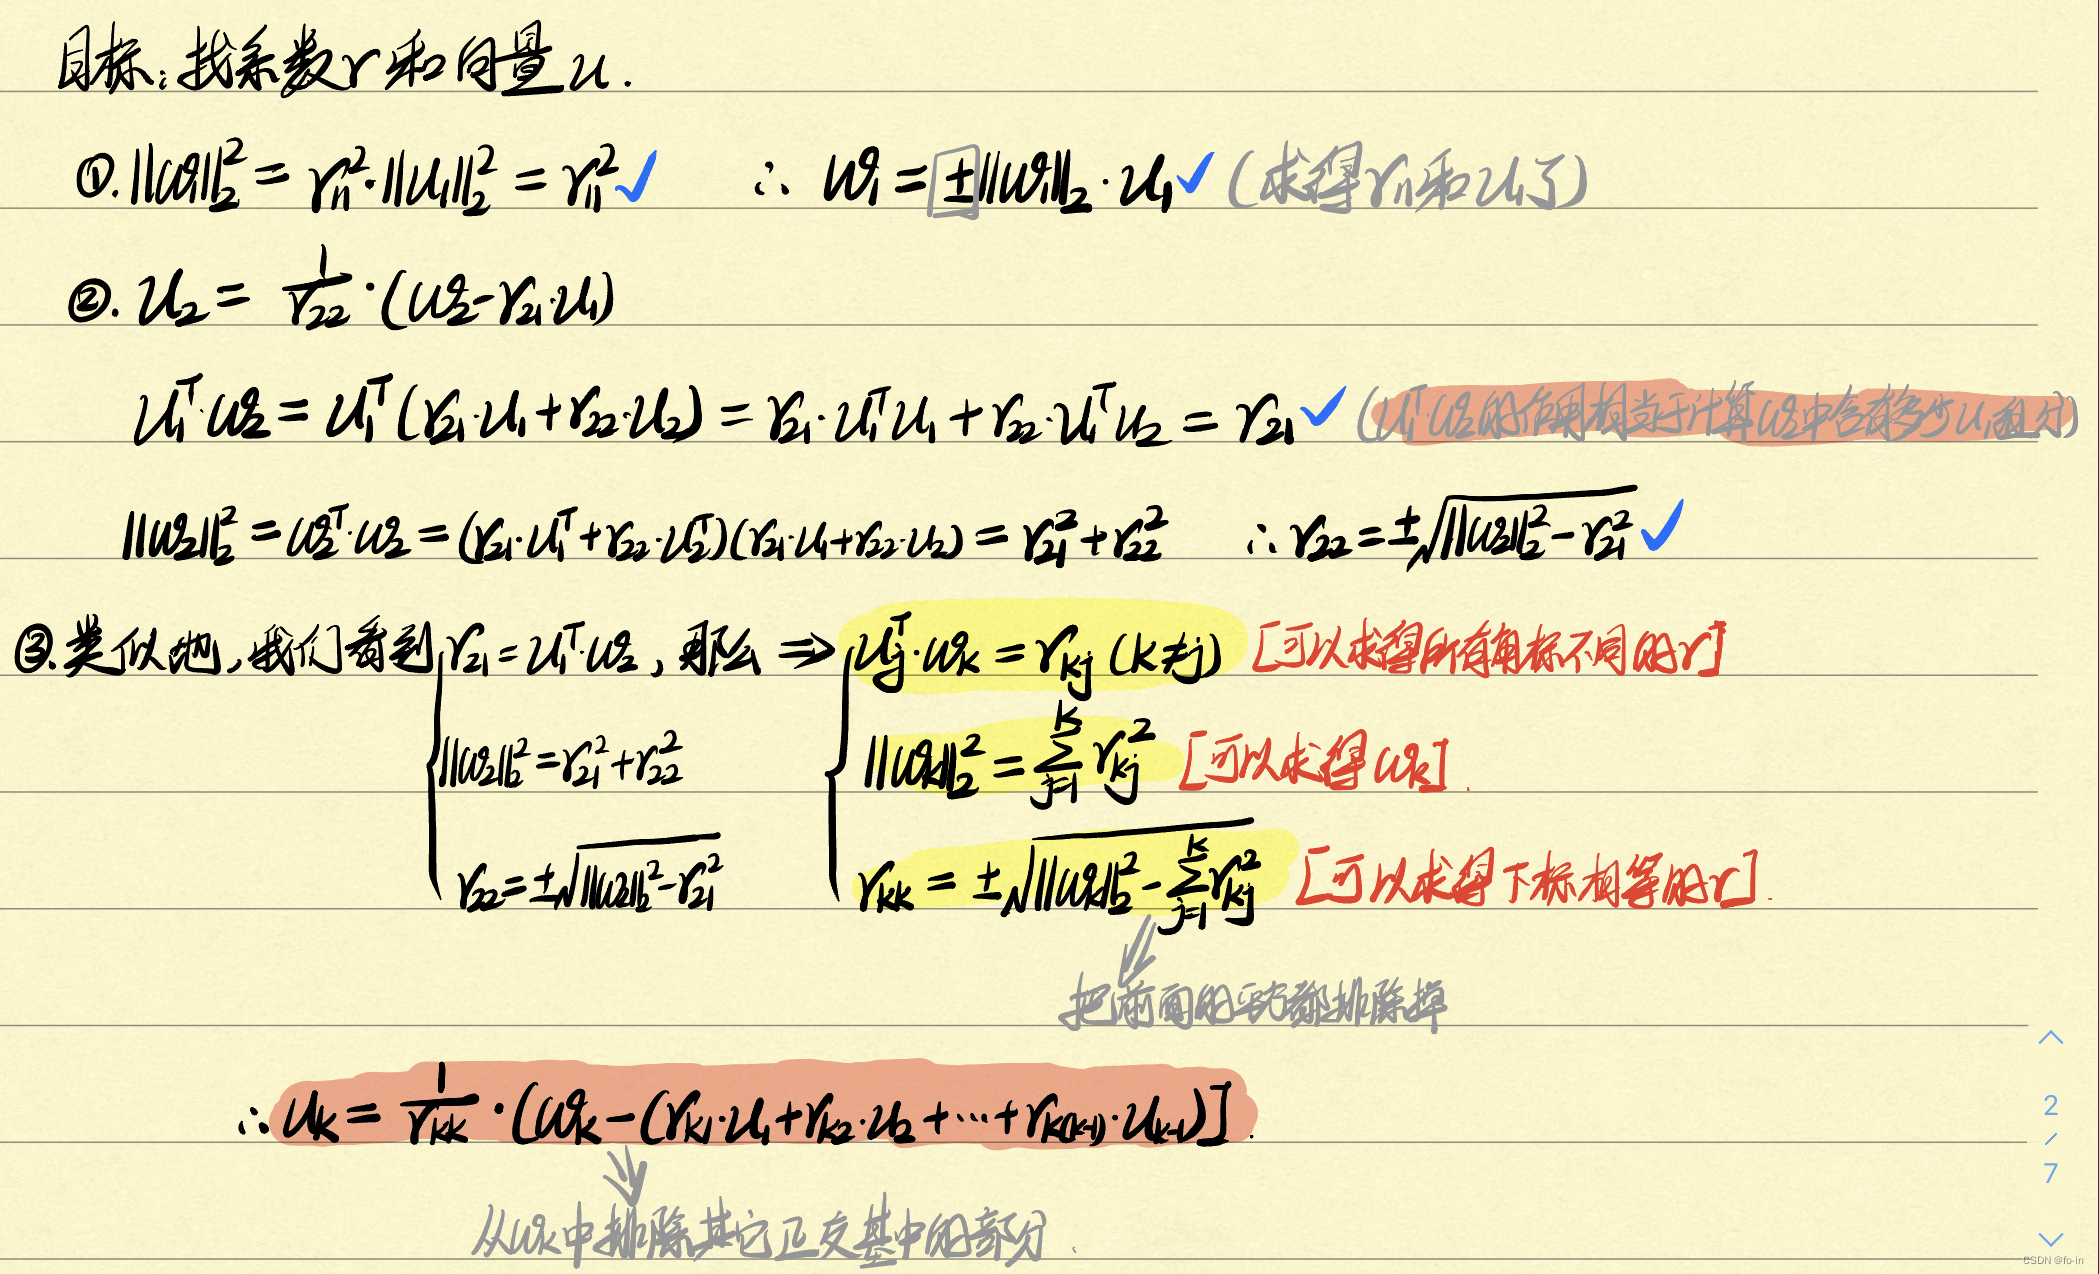 目标：找系数r和向量u.
①. ||w₁||₂² = r₁₁²·||u₁||₂² = r₁₁² ✓ ∴ w₁ = ±||w₁||₂·u₁ ✓ (求得r₁₁和u₁了)
②. u₂ = 1/r₂₂·(w₂-r₂₁·u₁)
u₁ᵀ·w₂ = u₁ᵀ(r₂₁·u₁+r₂₂·u₂) = r₂₁·u₁ᵀu₁ + r₂₂·u₁ᵀu₂ = r₂₁ ✓ (u₁ᵀ·w₂的作用相当于计算w₂中含有多少u₁组分)
||w₂||₂² = w₂ᵀ·w₂ = (r₂₁·u₁ᵀ+r₂₂·u₂ᵀ)(r₂₁·u₁+r₂₂·u₂) = r₂₁²+r₂₂² ∴ r₂₂ = ±√(||w₂||₂²-r₂₁²) ✓
③. 类似地，我们看到 { r₂₁ = u₁ᵀ·w₂, 那么 ⇒ { uⱼᵀ·wₖ = rₖⱼ (k≠j) [可以求得所有角标不同的r]
||w₂||₂² = r₂₁²+r₂₂² ||wₖ||₂² = Σⱼ₌₁ᵏ rₖⱼ² [可以求得wₖ].
r₂₂ = ±√(||w₂||₂²-r₂₁²) rₖₖ = ±√(||wₖ||₂² - Σⱼ₌₁ᵏ rₖⱼ²) [可以求得下标相等的r].
把前面的平方都排除掉
∴ uₖ = 1/rₖₖ·(wₖ-(rₖ₁·u₁+rₖ₂·u₂+···+rₖ₍ₖ₋₁₎·uₖ₋₁)].
从wₖ中排除其它正交基中的部分.
2
/
7
CSDN @fo-in